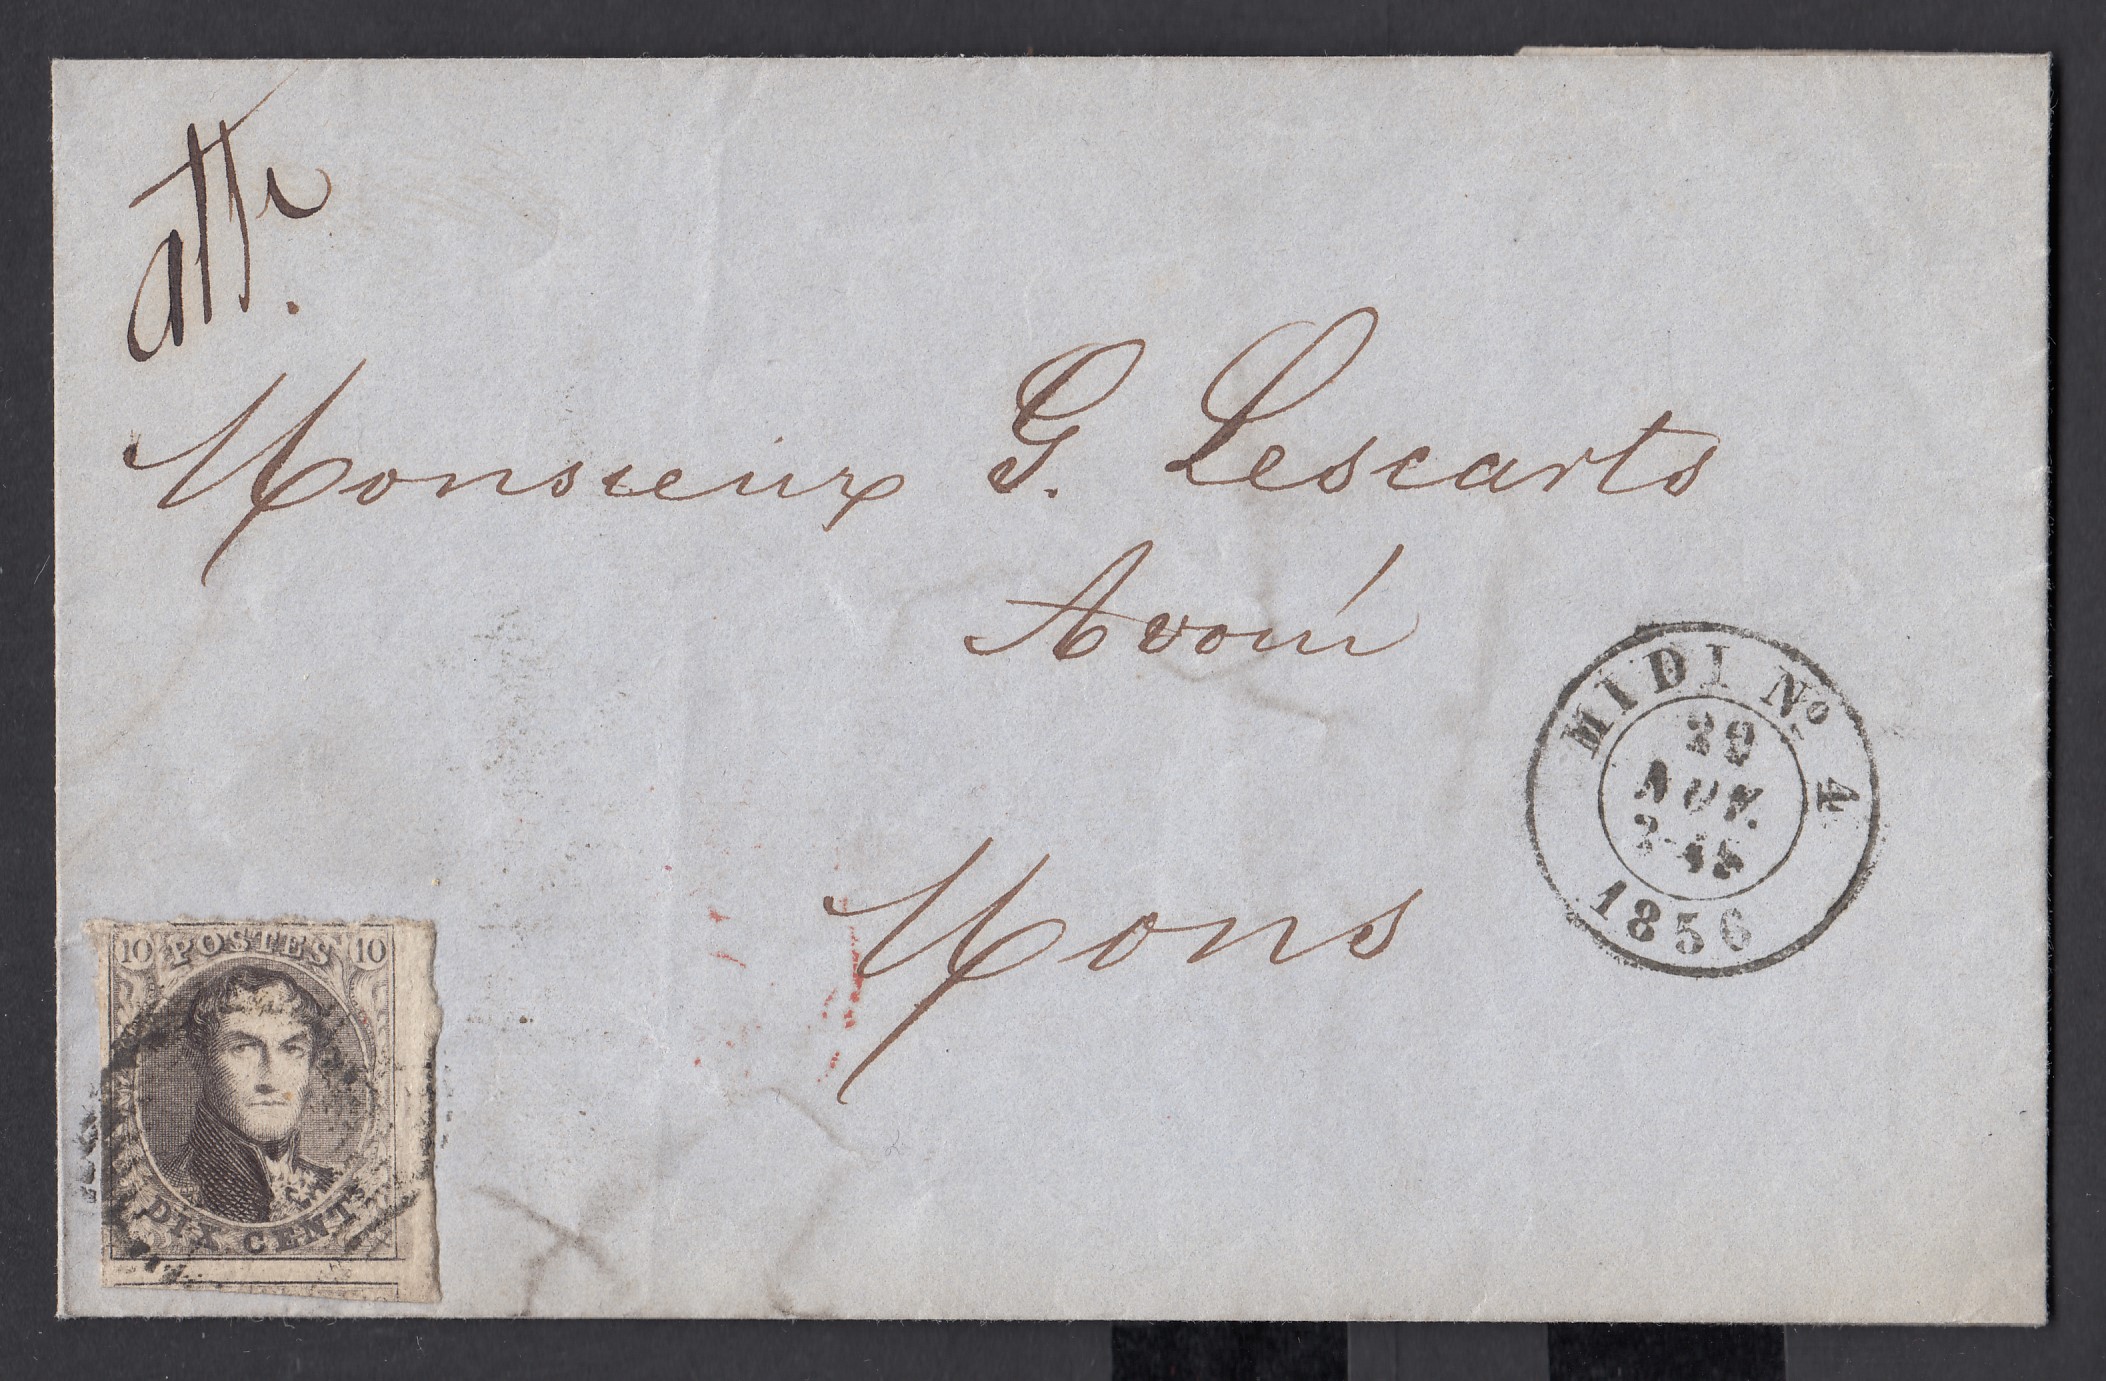 aff.
Monsieur G. Lescarts
Avoué
Mons
MIDI Nº 4
29
NOV.
2-45
1856
10 POSTES 10
DIX CENTS